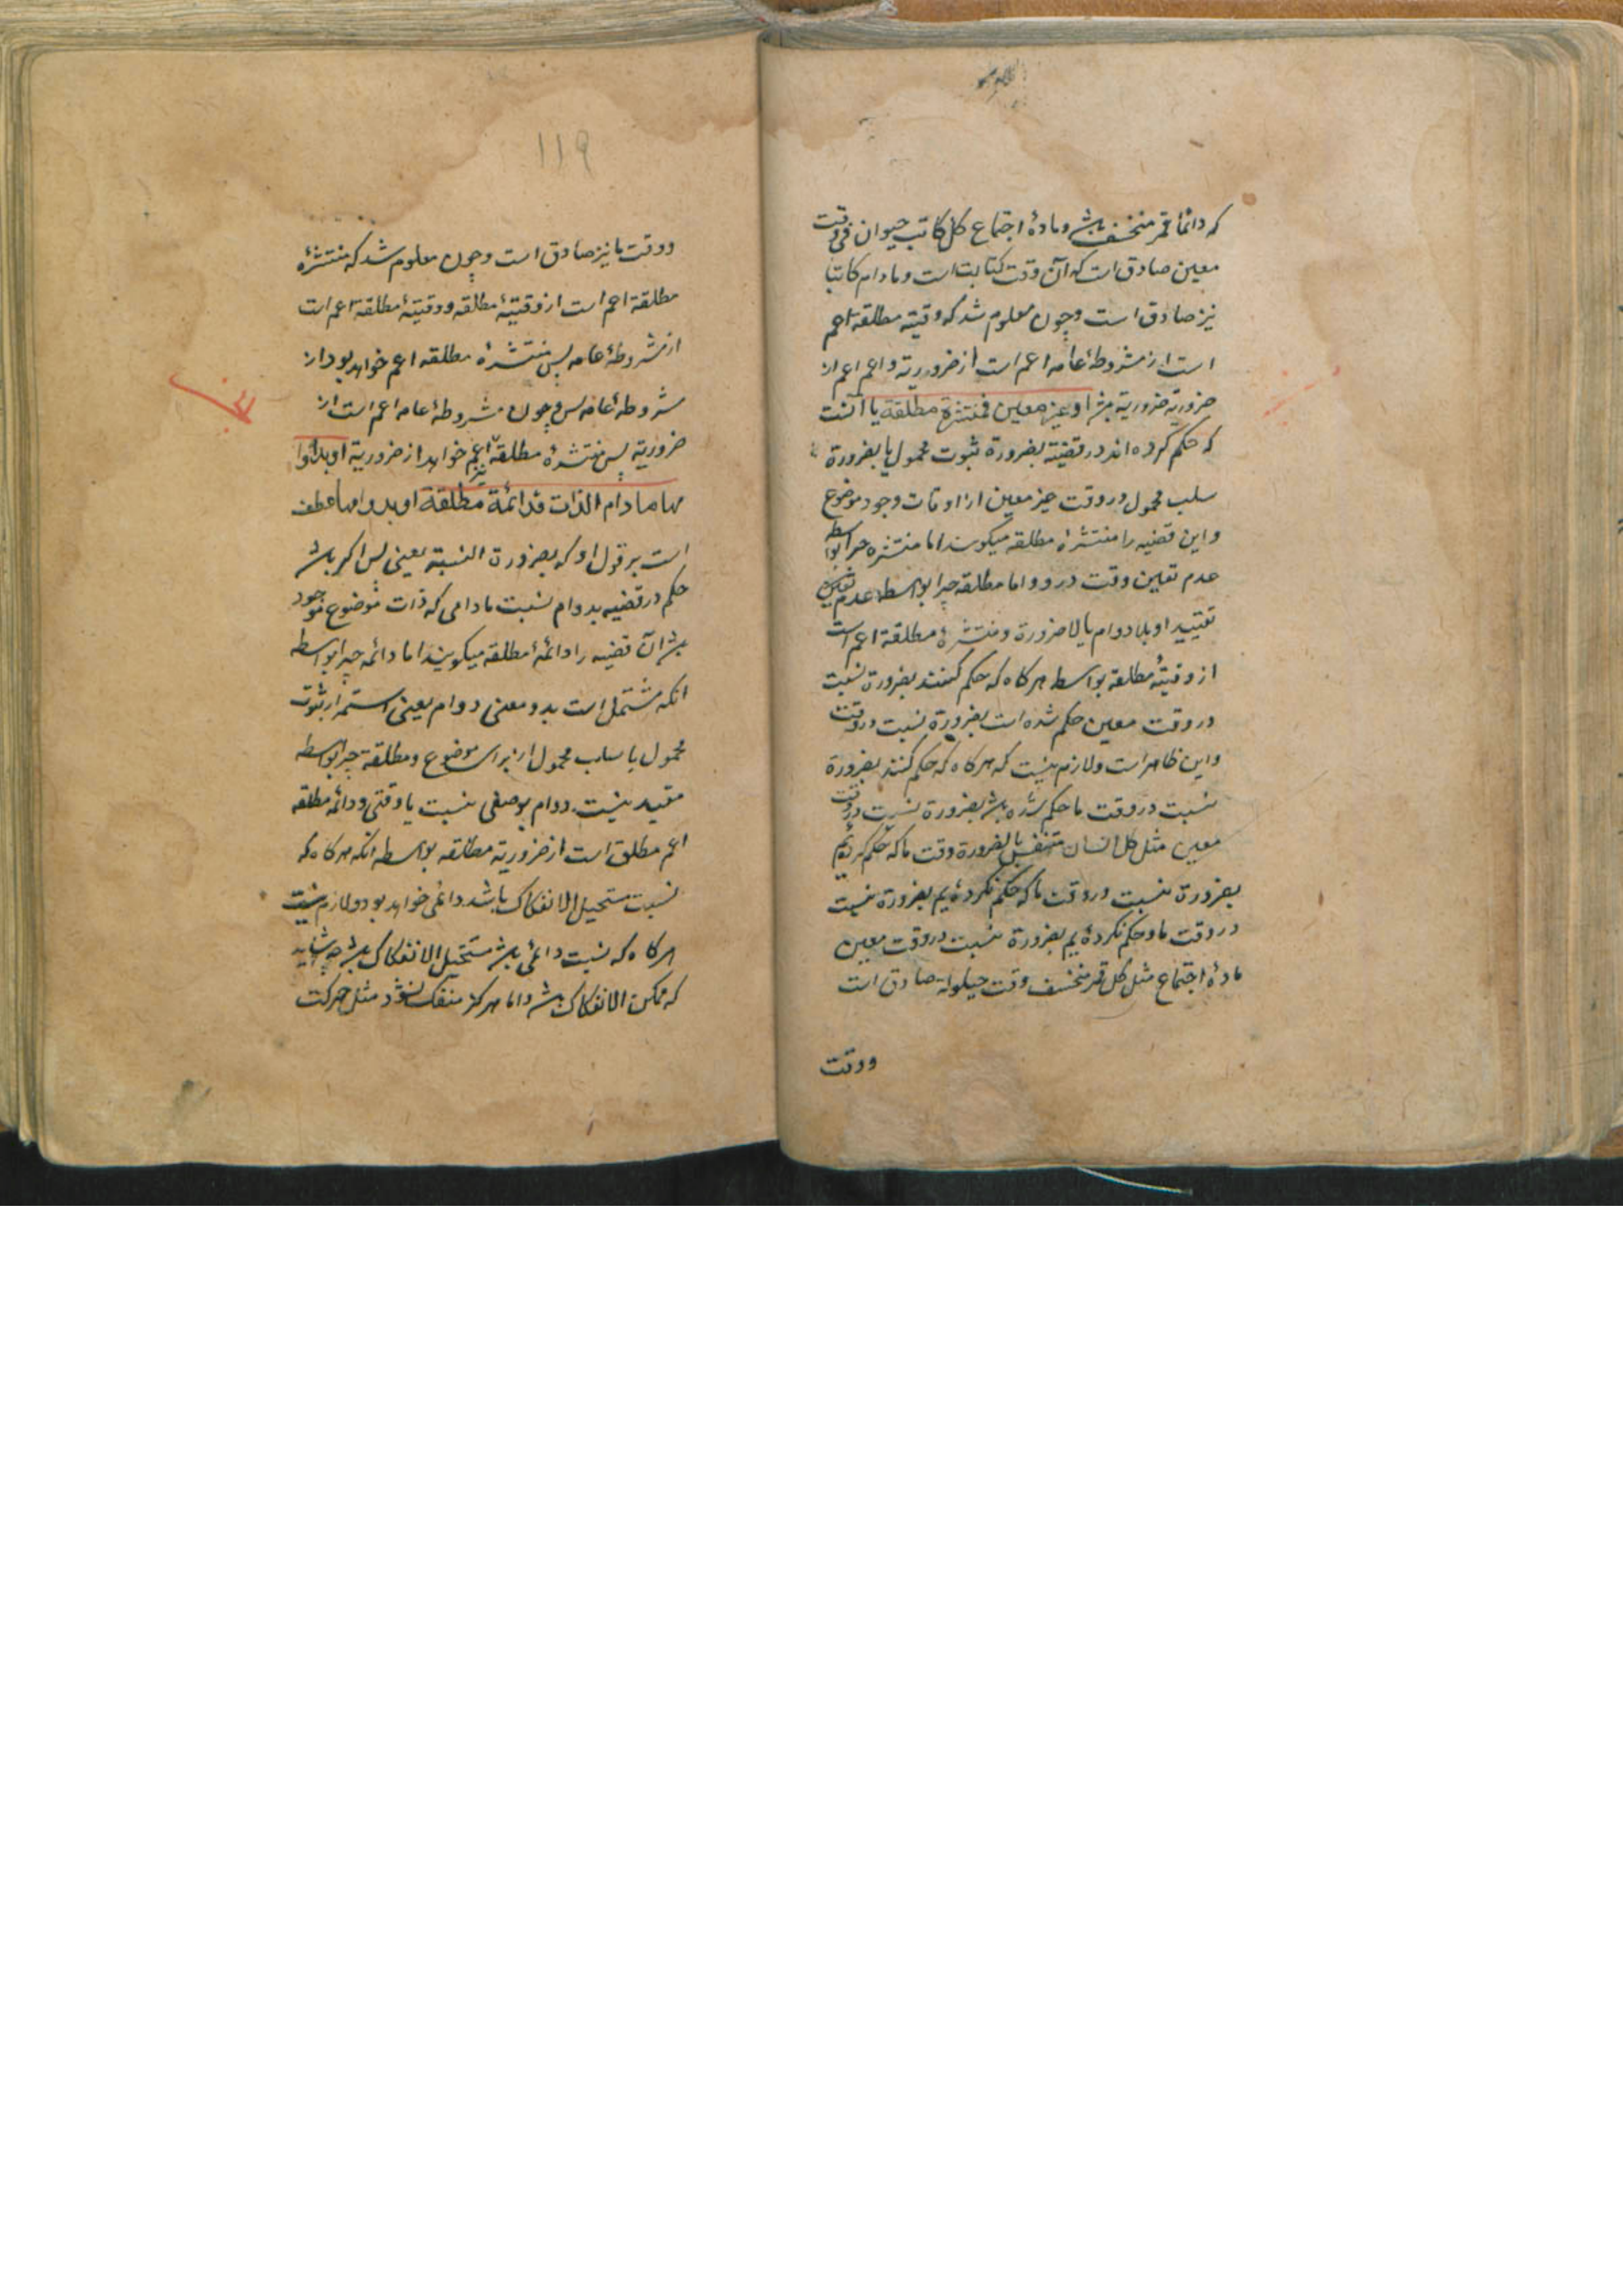 که دائما قمر منخسف باشد و مادهٔ اجتماع کل کاتب حیوان فی وقت
معین صادق است که آن وقت کتابت است و مادام کاتبا
نیز صادق است و چون معلوم شد که وقتیه مطلقه اعم
است از مشروطهٔ عامه اعم است از ضروریة و اعم اعم از
ضروریة ضروریة باشد او غیر معین فمنتشرة مطلقة یا آنست
که حکم کرده اند در قضیه بضرورة ثبوت محمول یا بضرورة
سلب محمول در وقت غیر معین از اوقات وجود موضوع
و این قضیه را منتشرهٔ مطلقه میکویند اما منتشره چرا بواسطه
عدم تعین وقت درو و اما مطلقه چرا بواسطه عدم
تقیید او بلا دوام یا لا ضرورة و منتشرهٔ مطلقه اعم است
از وقتیهٔ مطلقه بواسطه هر کاه که حکم کنند بضرورة نسبت
در وقت معین حکم شده است بضرورة نسبت در وقت
و این ظاهر است و لازم نیست که هر کاه که حکم کنند بضرورة
نسبت در وقت ما حکم شده باشد بضرورة نسبت در وقت
معین مثل کل انسان متنفس بالضرورة وقت ما که حکم کرده‌ایم
بضرورة نسبت در وقت ما که حکم نکرده‌ایم بضرورة نسبت
در وقت ما و حکم نکرده‌ایم بضرورة نسبت در وقت معین
مادهٔ اجتماع مثل کل قمر منخسف وقت حیلولة صادق است
ووقت
۱۱۹
ووقت ما نیز صادق است و چون معلوم شد که منتشرهٔ
مطلقة اعم است از وقتیهٔ مطلقه و وقتیهٔ مطلقة اعم است
از مشروطهٔ عامه پس منتشرهٔ مطلقه اعم خواهد بود از
مشروطهٔ عامه پس چون مشروطهٔ عامه اعم است از
ضروریة پس منتشرهٔ مطلقه نیز اعم خواهد از ضروریة او بدوا
مها مادام الذات فدائمة مطلقة او بدوامها عطف
است بر قول او که بضرورة النسبة یعنی پس اکر باشد
حکم در قضیه بدوام نسبت مادامی که ذات موضوع موجود
باشد آن قضیه را دائمهٔ مطلقه میکویند اما دائمه چرا بواسطه
انکه مشتمل است بدو معنی دوام یعنی استمرار ثبوت
محمول یا سلب محمول از برای موضوع و مطلقة چرا بواسطه
مقید نیست دوام بوصفی نسبت یا وقتی و دائمه مطلقه
اعم مطلق است از ضروریة مطلقه بواسطه انکه هر کاه که
نسبت مستحیل الانفکاک باشد دائمی خواهد بود و لازم نیست
هر کاه که نسبت دائمی باشد مستحیل الانفکاک باشد چه شاید
که ممکن الانفکاک باشد و اما هرکز منفک نشود مثل حرکت